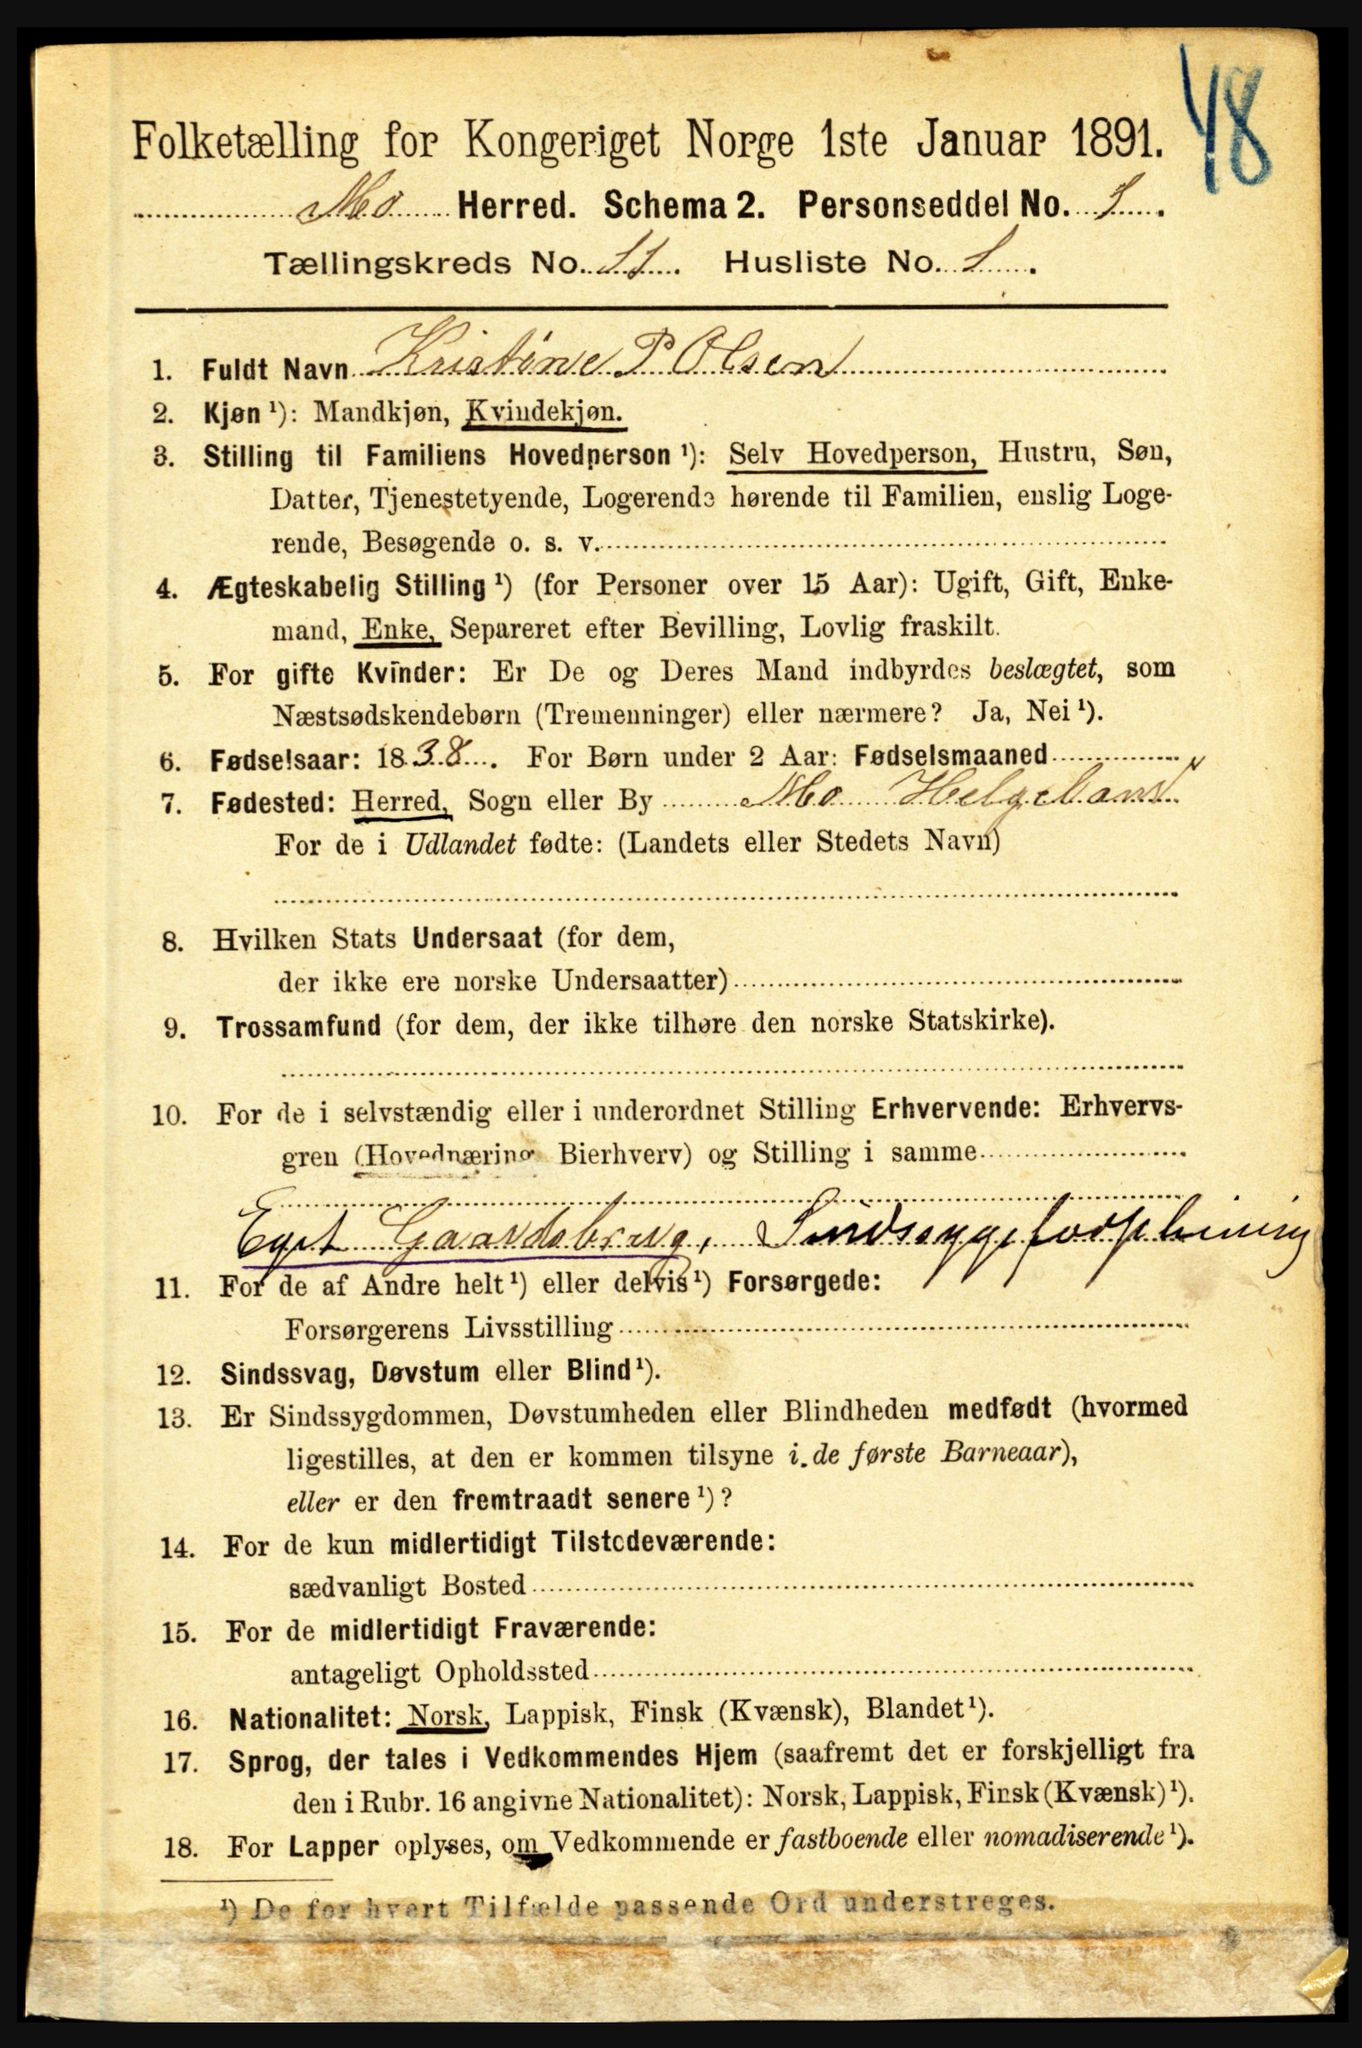 48
Folketælling for Kongeriget Norge 1ste Januar 1891.
Mo Herred. Schema 2. Personseddel No. 1.
Tællingskreds No. 11. Husliste No. 1.
1. Fuldt Navn Kristine P Olsen
2. Kjøn ¹): Mandkjøn, Kvindekjøn.
3. Stilling til Familiens Hovedperson ¹): Selv Hovedperson, Hustru, Søn,
Datter, Tjenestetyende, Logerende hørende til Familien, enslig Loge-
rende, Besøgende o. s. v.
4. Ægteskabelig Stilling ¹) (for Personer over 15 Aar): Ugift, Gift, Enke-
mand, Enke, Separeret efter Bevilling, Lovlig fraskilt.
5. For gifte Kvinder: Er De og Deres Mand indbyrdes beslægtet, som
Næstsødskendebørn (Tremenninger) eller nærmere? Ja, Nei ¹).
6. Fødselsaar: 1838. For Børn under 2 Aar: Fødselsmaaned
7. Fødested: Herred, Sogn eller By Mo Helgeland
For de i Udlandet fødte: (Landets eller Stedets Navn)
8. Hvilken Stats Undersaat (for dem,
der ikke ere norske Undersaatter)
9. Trossamfund (for dem, der ikke tilhøre den norske Statskirke).
10. For de i selvstændig eller i underordnet Stilling Erhvervende: Erhvervs-
gren (Hovednæring, Bierhverv) og Stilling i samme
Eget Gaardsbrug, Sindssygeforpleining
11. For de af Andre helt ¹) eller delvis ¹) Forsørgede:
Forsørgerens Livsstilling
12. Sindssvag, Døvstum eller Blind ¹).
13. Er Sindssygdommen, Døvstumheden eller Blindheden medfødt (hvormed
ligestilles, at den er kommen tilsyne i de første Barneaar),
eller er den fremtraadt senere ¹)?
14. For de kun midlertidigt Tilstedeværende:
sædvanligt Bosted
15. For de midlertidigt Fraværende:
antageligt Opholdssted
16. Nationalitet: Norsk, Lappisk, Finsk (Kvænsk), Blandet ¹).
17. Sprog, der tales i Vedkommendes Hjem (saafremt det er forskjelligt fra
den i Rubr. 16 angivne Nationalitet): Norsk, Lappisk, Finsk (Kvænsk) ¹).
18. For Lapper oplyses, om Vedkommende er fastboende eller nomadiserende ¹).
¹) De for hvert Tilfælde passende Ord understreges.